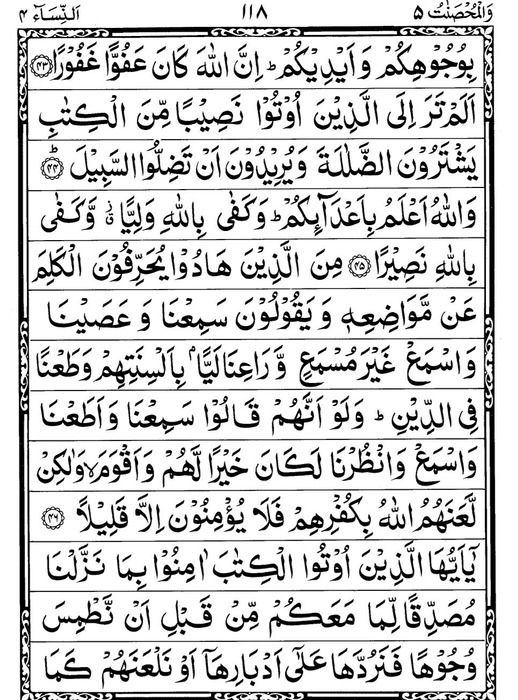 وَالْمُحْصَنٰتُ ۵ ۱۱۸ اَلنِّسَآء ۴
بِوُجُوْهِكُمْ وَاَيْدِيْكُمْ ؕ اِنَّ اللّٰهَ كَانَ عَفُوًّا غَفُوْرًا ﴿۴۳﴾
اَلَمْ تَرَ اِلَى الَّذِيْنَ اُوْتُوْا نَصِيْبًا مِّنَ الْكِتٰبِ
يَشْتَرُوْنَ الضَّلٰلَةَ وَيُرِيْدُوْنَ اَنْ تَضِلُّوا السَّبِيْلَ ﴿۴۴﴾ؕ
وَاللّٰهُ اَعْلَمُ بِاَعْدَآئِكُمْ ؕ وَكَفٰى بِاللّٰهِ وَلِيًّا ۫ۙ وَّكَفٰى
بِاللّٰهِ نَصِيْرًا ﴿۴۵﴾ مِنَ الَّذِيْنَ هَادُوْا يُحَرِّفُوْنَ الْكَلِمَ
عَنْ مَّوَاضِعِهٖ وَيَقُوْلُوْنَ سَمِعْنَا وَعَصَيْنَا
وَاسْمَعْ غَيْرَ مُسْمَعٍ وَّرَاعِنَا لَيًّاۢ بِاَلْسِنَتِهِمْ وَطَعْنًا
فِى الدِّيْنِ ؕ وَلَوْ اَنَّهُمْ قَالُوْا سَمِعْنَا وَاَطَعْنَا
وَاسْمَعْ وَانْظُرْنَا لَكَانَ خَيْرًا لَّهُمْ وَاَقْوَمَ ۙ وَلٰكِنْ
لَّعَنَهُمُ اللّٰهُ بِكُفْرِهِمْ فَلَا يُؤْمِنُوْنَ اِلَّا قَلِيْلًا ﴿۴۶﴾
يٰۤاَيُّهَا الَّذِيْنَ اُوْتُوا الْكِتٰبَ اٰمِنُوْا بِمَا نَزَّلْنَا
مُصَدِّقًا لِّمَا مَعَكُمْ مِّنْ قَبْلِ اَنْ نَّطْمِسَ
وُجُوْهًا فَنَرُدَّهَا عَلٰۤى اَدْبَارِهَاۤ اَوْ نَلْعَنَهُمْ كَمَا